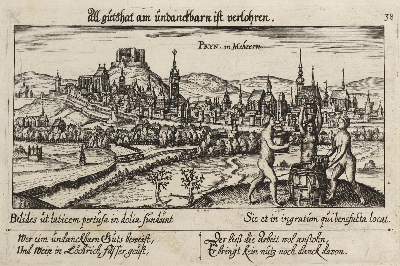 All gutthat am undanckbarn ist verlohren.
38
PRYN. in Mehrern.
Belides ut laticem pertusa in dolia fundunt
Sic et in ingratum qui benefacta locat.
Wer eim undanckbarn Guts beweist,
Und Wein in Löchrich fässer geust,
Derließ die Arbeit wol anstohn,
Er bringt kein nutz noch danck davon.